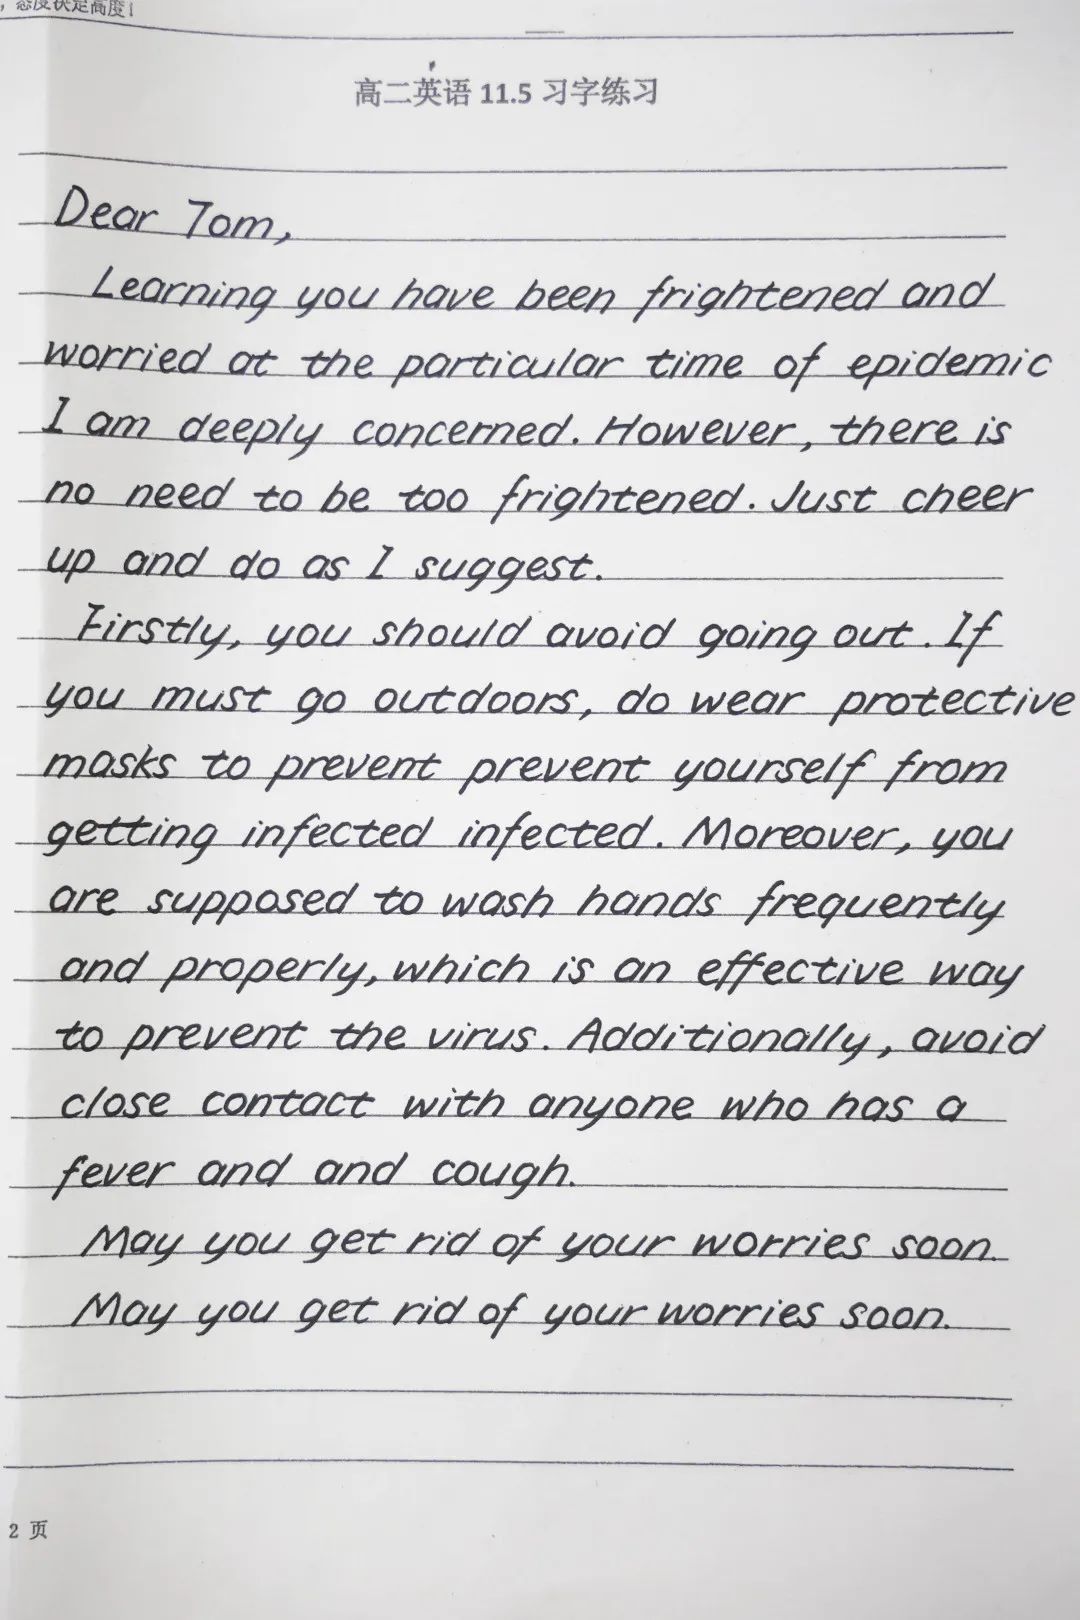 ，态度决定高度！
高二英语 11.5 习字练习
Dear Tom,
Learning you have been frightened and
worried at the particular time of epidemic
I am deeply concerned. However, there is
no need to be too frightened. Just cheer
up and do as I suggest.
Firstly, you should avoid going out. If
you must go outdoors, do wear protective
masks to prevent prevent yourself from
getting infected infected. Moreover, you
are supposed to wash hands frequently
and properly, which is an effective way
to prevent the virus. Additionally, avoid
close contact with anyone who has a
fever and and cough.
May you get rid of your worries soon.
May you get rid of your worries soon.
2 页